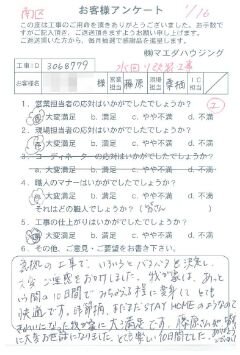 南区
1/16
お客様アンケート
この度は工事のご用命を頂きありがとうございました。お手数で
すがご記入頂き、ご返送頂きますようお願い申し上げます。
ご返送頂いた方から、毎月抽選で感謝品を進呈します。
㈱マエダハウジング
工事ID 3068779 水回り改装工事
お客様名 様 営業担当 藤原 現場担当
1. 営業担当者の応対はいかがでしたでしょうか？
a. 大変満足 b. 満足 c. やや不満 d. 不満
2. 現場担当者の応対はいかがでしたでしょうか？
a. 大変満足 b. 満足 c. やや不満 d. 不満
3. コーディネーターの応対はいかがでしたでしょうか？
a. 大変満足 b. 満足 c. やや不満 d. 不満
4. 職人のマナーはいかがでしたでしょうか？
a. 大変満足 b. 満足 c. やや不満 d. 不満
それはどの職人でしょうか？
5. 工事の仕上がりはいかがでしたでしょうか？
大変満足 b. 満足 c. やや不満 d. 不満
6. その他、ご意見、ご要望をお書き下さい。
の工事で、いろいろと
大変ご迷惑をおかけしました。我が家は、あっと
いう間の10日間でみちがえる程に変身して とても
快適です。時節柄、まだまだSTAY HOMEのようなので
きれいになった我が家に大満足です。藤原さんが
に大変お世話になりました。とても楽しい10日間でした。